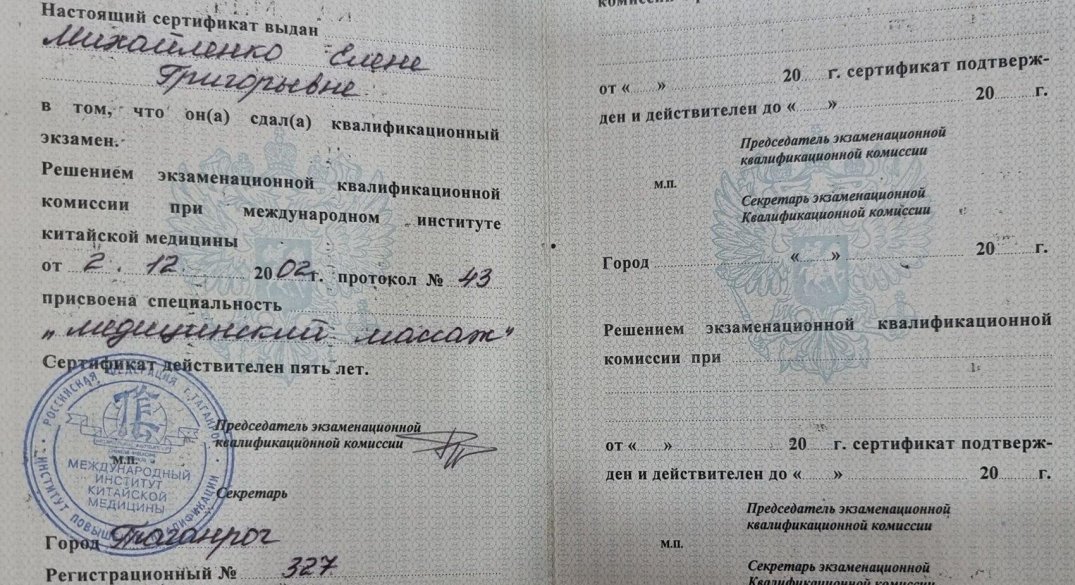 Настоящий сертификат выдан
Михайленко Елене
Григорьевне
в том, что он(а) сдал(а) квалификационный
экзамен.
Решением экзаменационной квалификационной
комиссии при международном институте
китайской медицины
от 2. 12 2002 г. протокол № 43
присвоена специальность
„медицинский массаж"
Сертификат действителен пять лет.
Председатель экзаменационной
квалификационной комиссии
М.П.
Секретарь
РОССИЙСКАЯ ФЕДЕРАЦИЯ Г. ТАГАНРОГ
ИНСТИТУТ ПОВЫШЕНИЯ КВАЛИФИКАЦИИ
МЕЖДУНАРОДНЫЙ
ИНСТИТУТ
КИТАЙСКОЙ
МЕДИЦИНЫ
Город Таганрог
Регистрационный № 327
от « » 20 г. сертификат подтверж-
ден и действителен до « » 20 г.
Председатель экзаменационной
квалификационной комиссии
М.П.
Секретарь экзаменационной
Квалификационной комиссии
Город « » 20 г.
Решением экзаменационной квалификационной
комиссии при
от « » 20 г. сертификат подтверж-
ден и действителен до « » 20 г.
Председатель экзаменационной
квалификационной комиссии
М.П.
Секретарь экзаменационной
Квалификационной комиссии